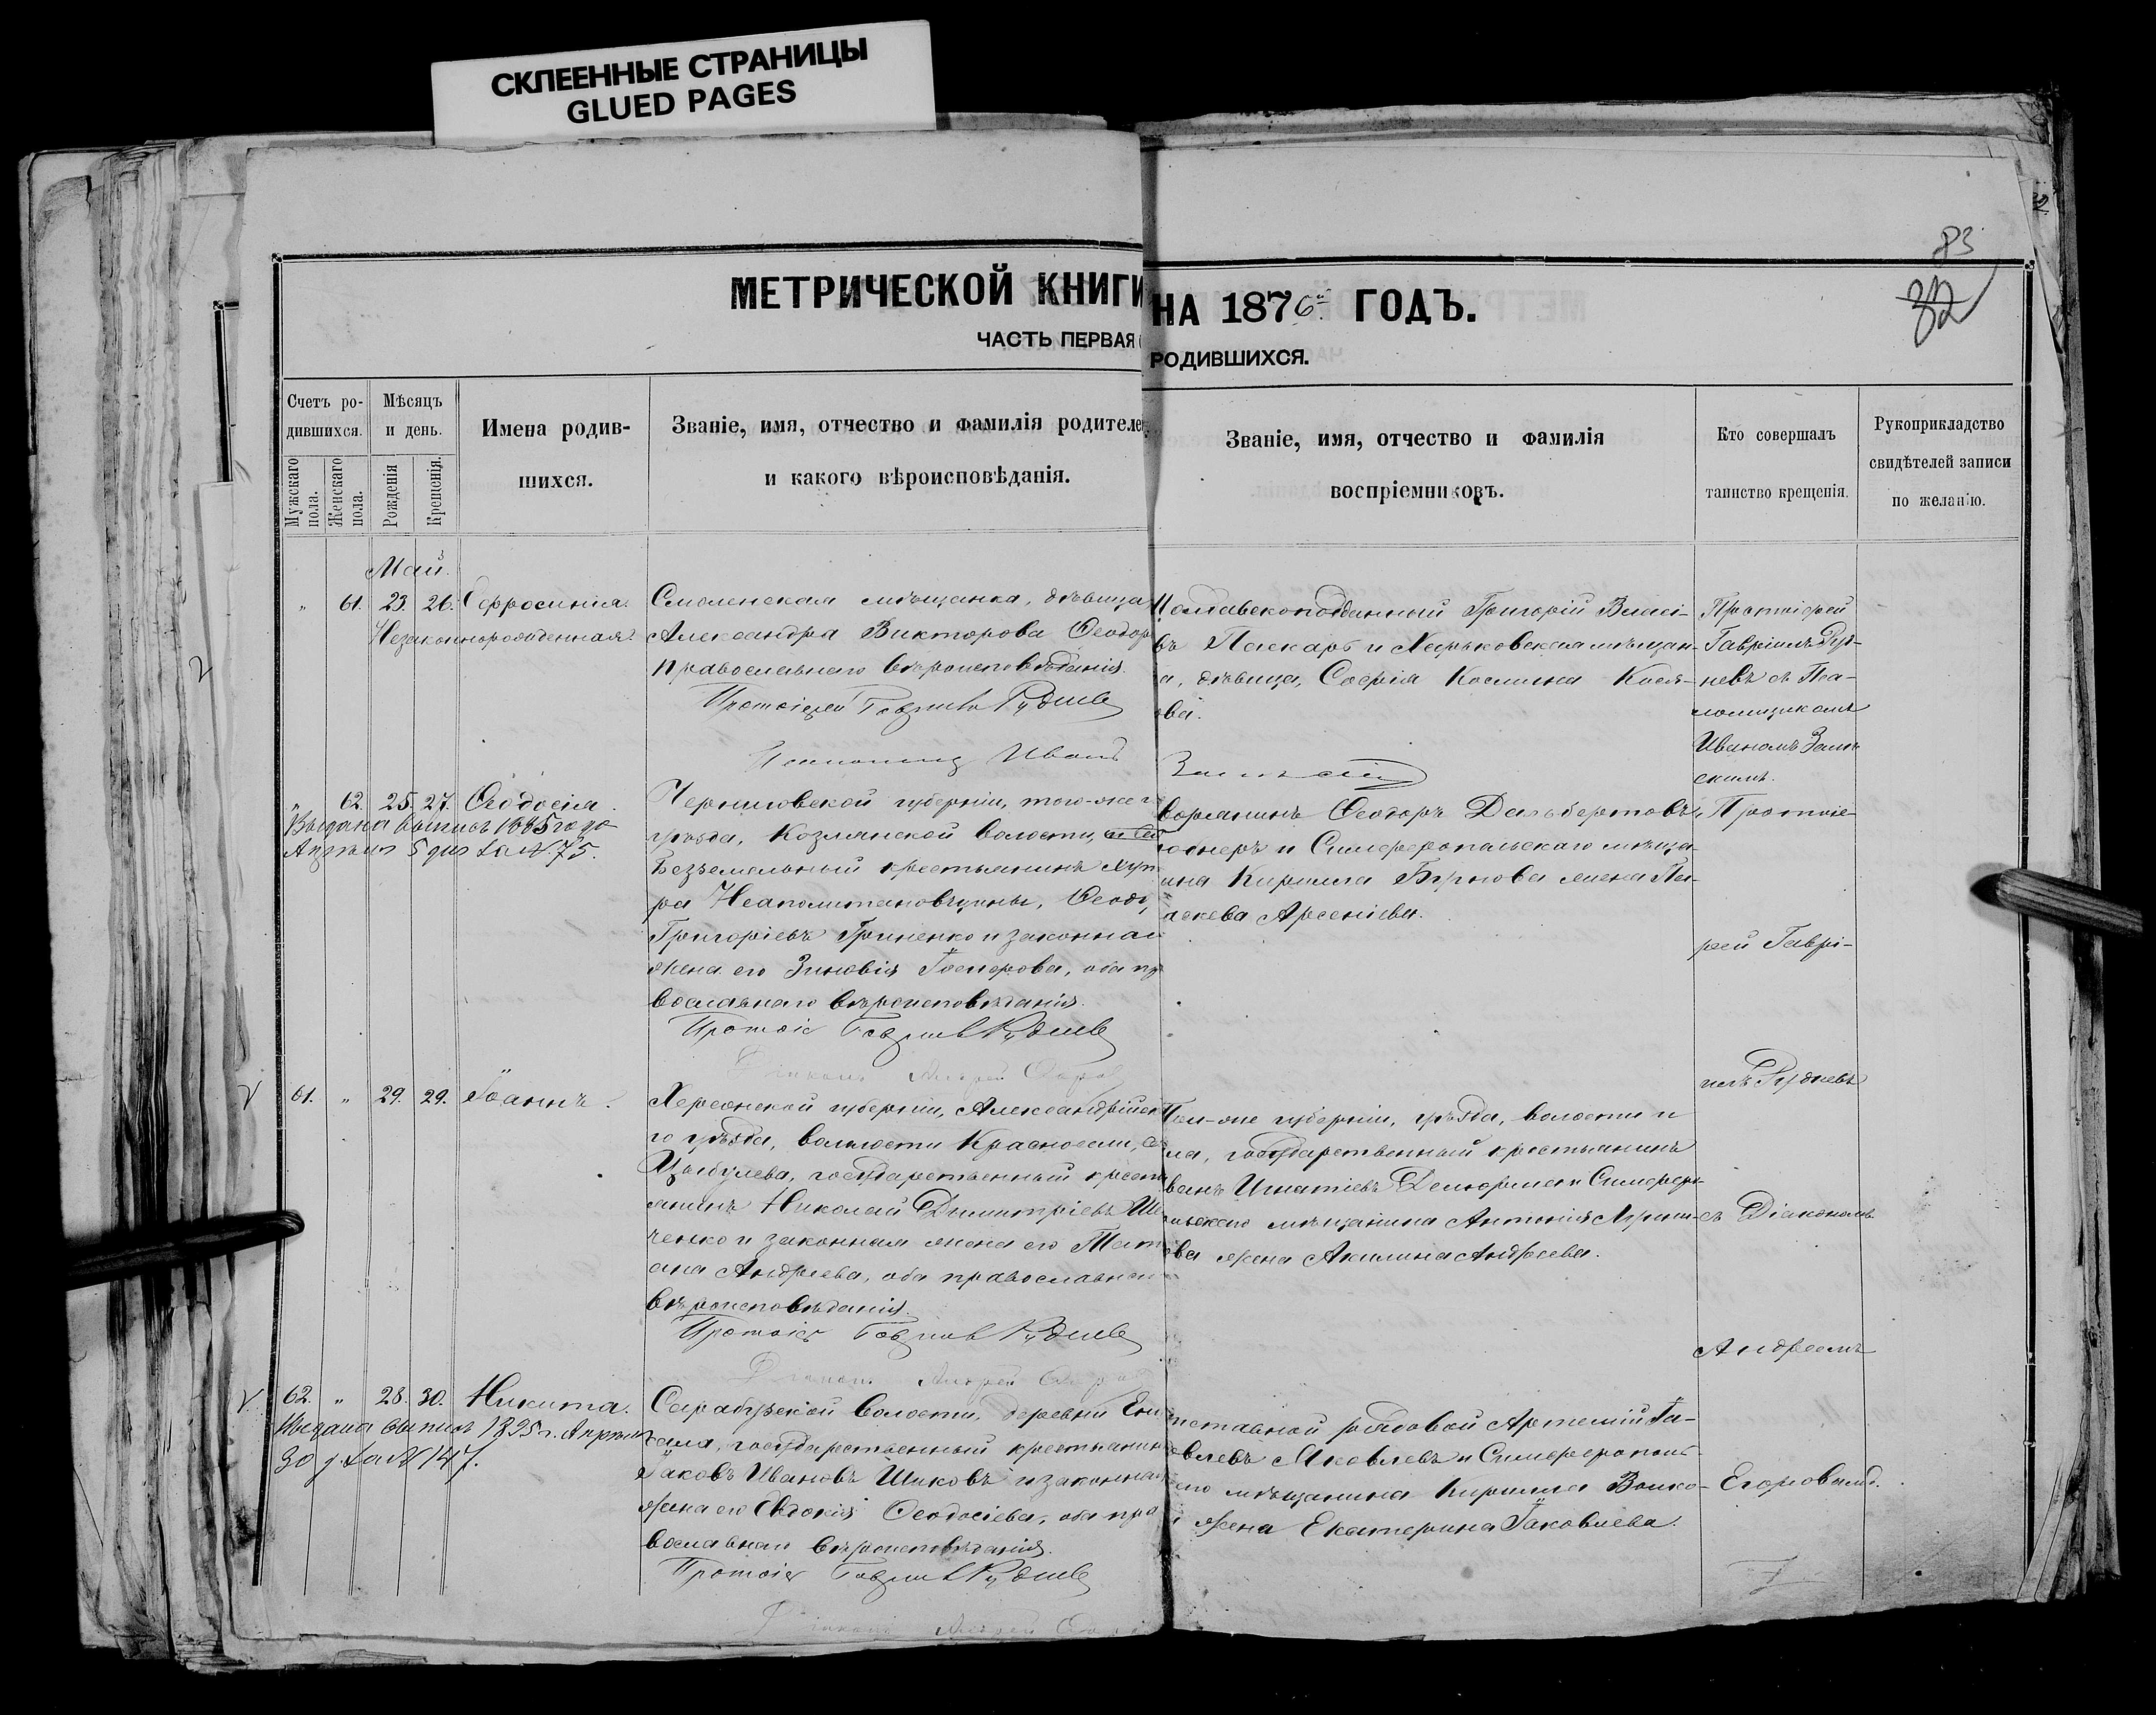 СКЛЕЕННЫЕ СТРАНИЦЫ
GLUED PAGES
83
32
МЕТРИЧЕСКОЙ КНИГИ НА 1876й ГОДЪ.
ЧАСТЬ ПЕРВАЯ
РОДИВШИХСЯ.
Счетъ ро-
дившихся.
Мужскаго пола.
Женскаго пола.
Мѣсяцъ
и день.
Рожденія
Крещенія.
Имена родив-
шихся.
Званіе, имя, отчество и фамилія родителе
и какого вѣроисповѣданія.
Званіе, имя, отчество и фамилія
воспріемниковъ.
Кто совершалъ
таинство крещенія.
Рукоприкладство
свидѣтелей записи
по желанію.
Май.
" 61. 23. 26. Ефросинія.
Незаконнорожденная.
Смоленская мѣщанка, дѣвица
Александра Викторова Ѳеодор
православнаго вѣроисповѣданія.
Протоіерей Гавріилъ Рудневъ
Иванъ
подданный Григорій
въ Паскарь и Харьковская мѣщан-
а, дѣвица, Софія Космина
ова.
Протоіерей
Гавріилъ Руд-
невъ съ Пса-
ломщикомъ
Иваномъ
скимъ.
" 62. 25. 27. Ѳеодосія.
Выдана выпись 1885 года
Апрѣля 5 дня за № 75.
Черниговской губерніи, того-же
уѣзда, Козлянской волости,
Безземельный крестьянинъ хут
ра Неаполитановщины, Ѳеод
Григоріевъ Гриненко и законная
жена его Зиновія Іосифова, оба пр
вославнаго вѣроисповѣданія.
Протоіе Гавріилъ Рудневъ
Діаконъ Андрей
ворянинъ Ѳеодоръ Дальбертовъ
и Симферопольскаго мѣща-
ина Кирилла жена
аскева Арсеніева.
Протоіе-
рей Гаврі-
илъ Рудневъ
61. " 29. 29. Іоаннъ.
Херсонской губерніи, Александрійск
го уѣзда, волости Красносел, с
Цыбулева, государственный крест
янинъ Николай Димитріевъ Ше
ченко и законная жена его Тат
ана Андреева, оба православна
вѣроисповѣданія.
Протоіе Гавріилъ Рудневъ
Діаконъ Андрей
Той-же губерніи, уѣзда, волости и
ла, государственный крестьянинъ
ванъ Игнатіевъ и Симферо-
ольскаго мѣщанина Антонія
ва жена Акилина Андреева.
съ Діакономъ
Андреемъ
62. " 28. 30. Никита.
Выдана выпись 1895 г. Апрѣля
30 д. за № 147.
Сарабузской волости, деревни Ени
сала, государственный крестьянин
Іаковъ Ивановъ Шиковъ и законная
жена его Евдокія Ѳеодосіева, оба пра
вославнаго вѣроисповѣданія.
Протоіе Гавріилъ Рудневъ
Діаконъ Андрей
тставной рядовой Артемій Іа-
овлевъ Яковлевъ и Симферополь-
аго мѣщанина Кирилла Волко-
жена Екатерина Іаковлева.
Егоровымъ.